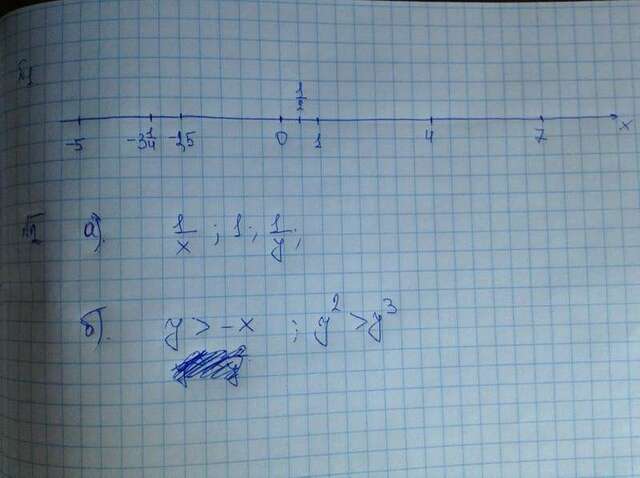 №1
1/2
-5 -3 1/4 -2,5 0 1 4 7 x
№2 а). 1/x ; 1 ; 1/y ;
б). y > -x ; y² > y³